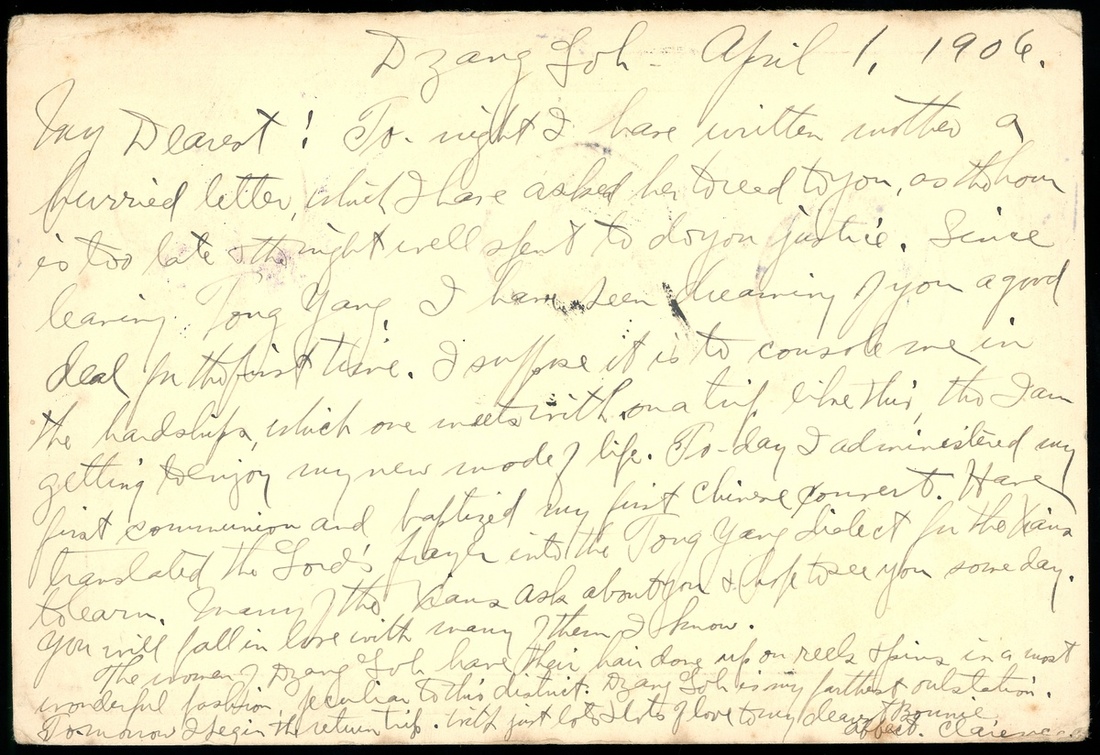 Dzang Loh - April 1, 1906.
My Dearest! To-night I have written mother a
hurried letter, which I have asked her to read to you, as the hour
is too late & the night well spent to do you justice. Since
leaving Tong Yang, I have been dreaming of you a good
deal for the first time. I suppose it is to console me in
the hardships, which one meets with on a trip like this, tho I am
getting to enjoy my new mode of life. To-day I administered my
first communion and baptized my first Chinese convert. Have
translated the Lord's Prayer into the Tong Yang dialect for the Xians
to learn. Many of the Xians ask about you & hope to see you some day.
You will fall in love with many of them I know.
The women of Dzang Loh have their hair done up on reels & pins in a most
wonderful fashion, peculiar to this district. Dzang Loh is my farthest outstation.
To-morrow I begin the return trip. With just lots & lots of love to my dearest Bonnie
affect. Clarence